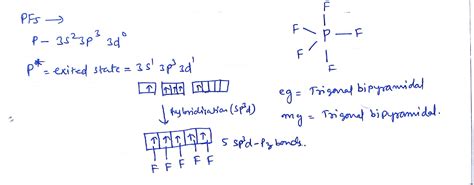 PF5 →
P - 3s² 3p³ 3d⁰
P* = exited state = 3s¹ 3p³ 3d¹
↑ ↑ ↑ ↑ ↑
hybridization (sp³d)
↑ ↑ ↑ ↑ ↑ 5 sp³d-Pz bonds.
F F F F F
F
F F
P
F
F
eg = Trigonal bipyramidal
mg = Trigonal bipyramidal.